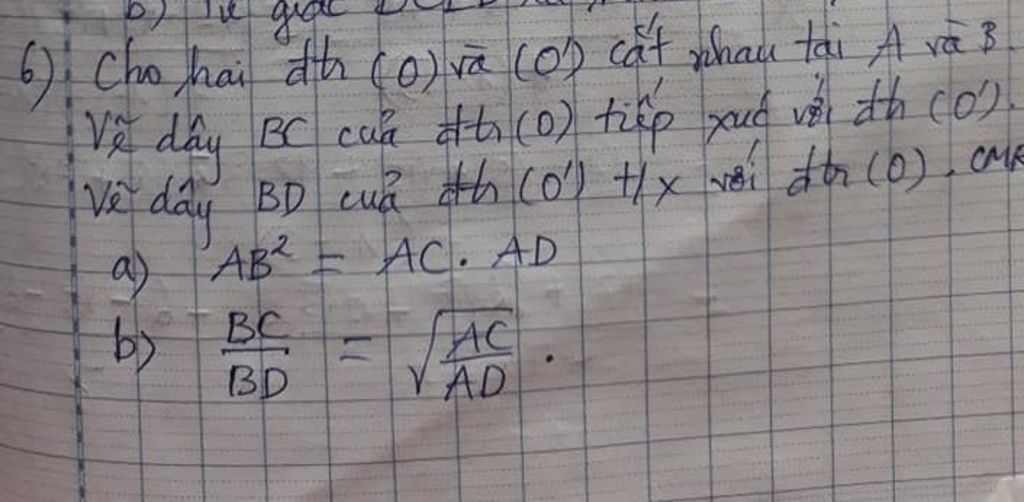 b) Tứ giác
6) Cho hai đtr (O) và (O') cắt nhau tại A và B.
Vẽ dây BC của đtr (O) tiếp xúc với đtr (O').
Vẽ dây BD của đtr (O') t/x với đtr (O). CMR
a) AB² = AC. AD
b) BC/BD = √AC/AD .